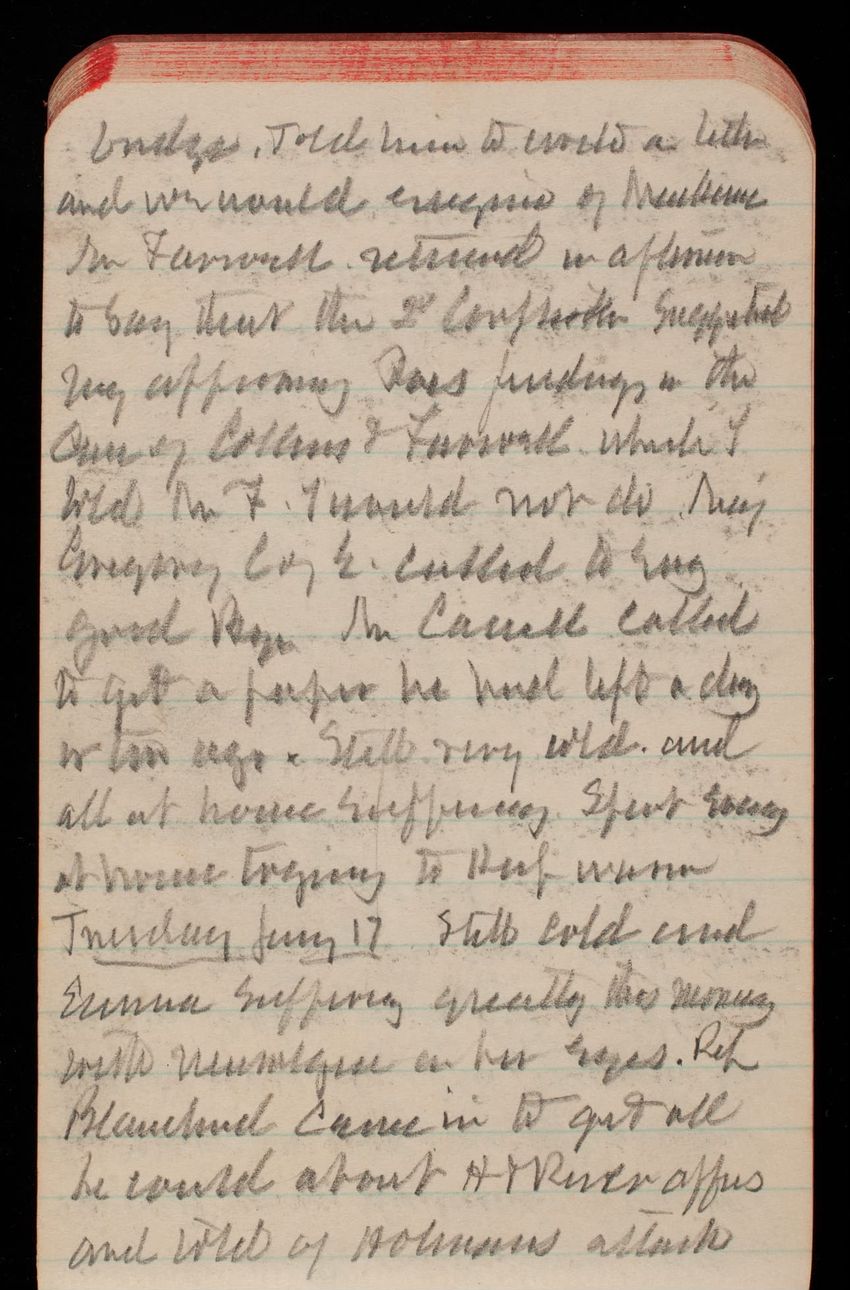 bridge. Told him to write a letter
and we would enquire of
Mr Farwell returned in afternoon
to say that the 2d Comptroller suggested
my approving Ross findings in the
Case of Collins & Farwell which I
told Mr F. I would not do. Maj
Gregory C of E. called to say
good bye Mr Carroll called
to get a paper he had left a day
or two ago. Still very cold. and
all at home suffering. Spent Evening
at home trying to Keep warm
Tuesday Jany 17 Still cold and
Emma suffering greatly this morning
with neuralgia in her eyes. Rep
Blanchard came in to get all
he could about River affrs
and told of Holmans attack